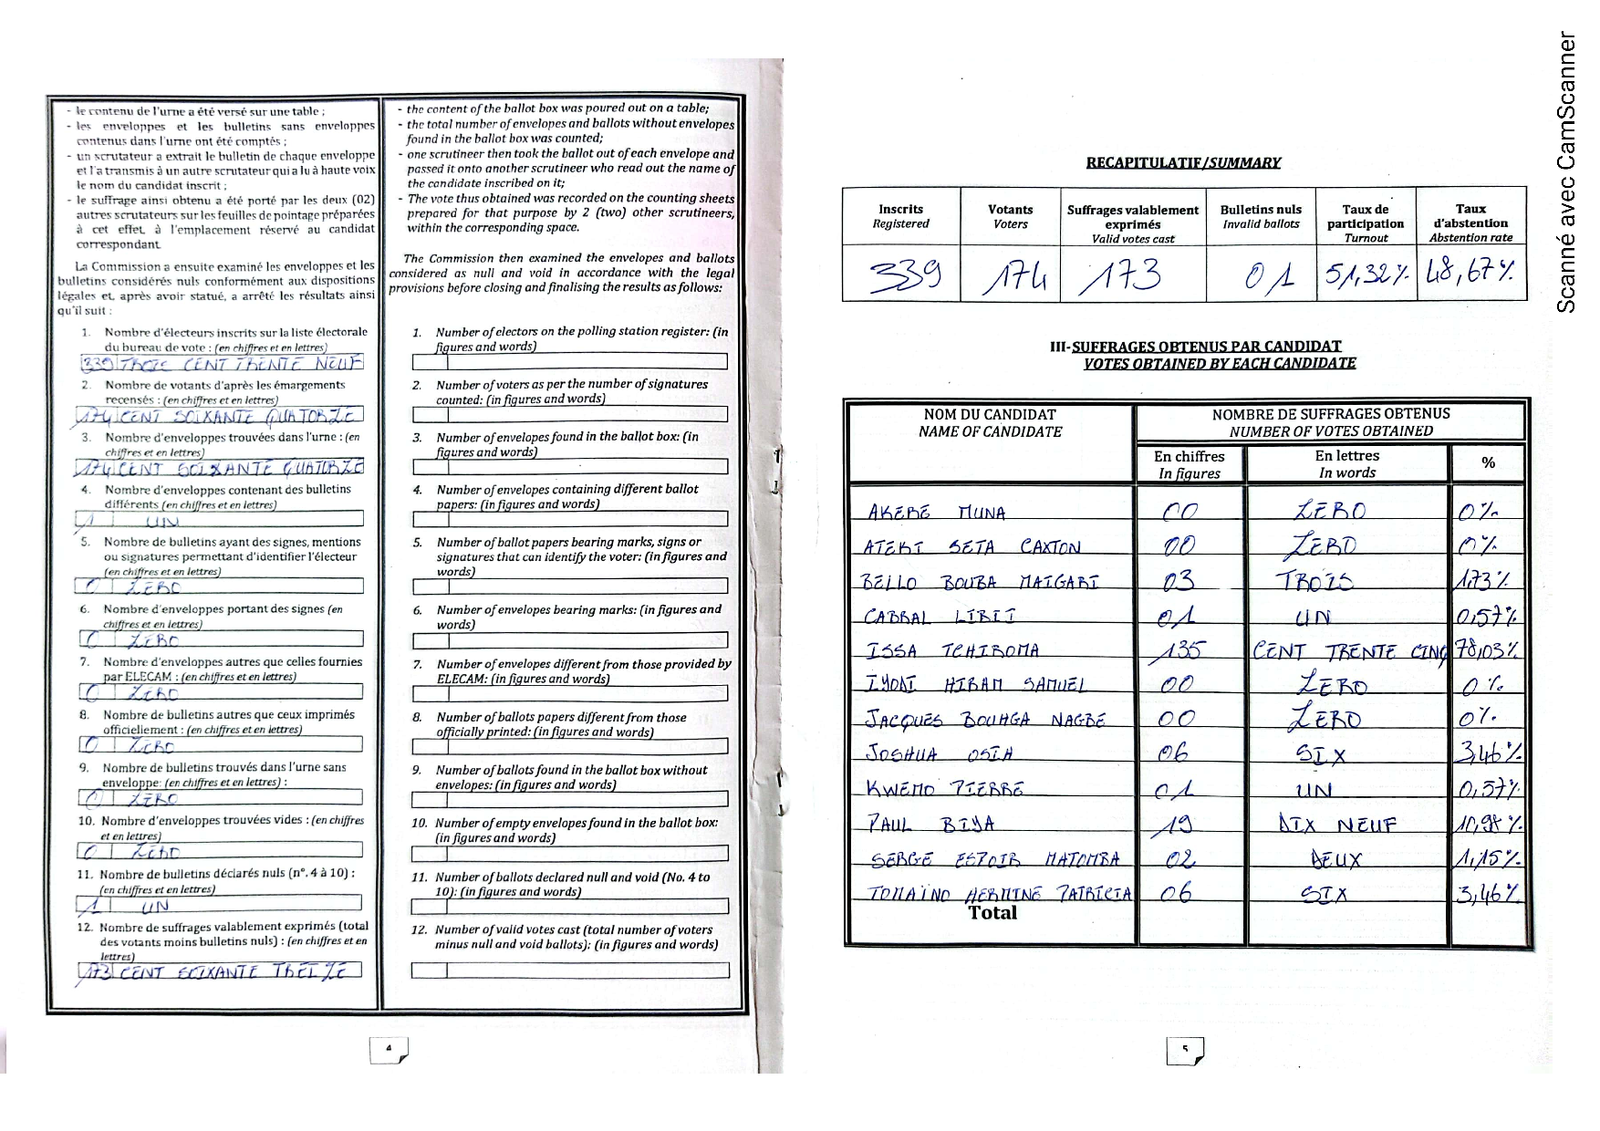 - le contenu de l'urne a été versé sur une table ;
- les enveloppes et les bulletins sans enveloppes
contenus dans l'urne ont été comptés ;
- un scrutateur a extrait le bulletin de chaque enveloppe
et l'a transmis à un autre scrutateur qui a lu à haute voix
le nom du candidat inscrit ;
- le suffrage ainsi obtenu a été porté par les deux (02)
autres scrutateurs sur les feuilles de pointage préparées
à cet effet, à l'emplacement réservé au candidat
correspondant.
La Commission a ensuite examiné les enveloppes et les
bulletins considérés nuls conformément aux dispositions
légales et, après avoir statué, a arrêté les résultats ainsi
qu'il suit :
1. Nombre d'électeurs inscrits sur la liste électorale
du bureau de vote : (en chiffres et en lettres)
339 TROIS CENT TRENTE NEUF
2. Nombre de votants d'après les émargements
recensés : (en chiffres et en lettres)
174 CENT SOIXANTE QUATORZE
3. Nombre d'enveloppes trouvées dans l'urne : (en
chiffres et en lettres)
174 CENT SOIXANTE QUATORZE
4. Nombre d'enveloppes contenant des bulletins
différents (en chiffres et en lettres)
1 UN
5. Nombre de bulletins ayant des signes, mentions
ou signatures permettant d'identifier l'électeur
(en chiffres et en lettres)
0 ZERO
6. Nombre d'enveloppes portant des signes (en
chiffres et en lettres)
0 ZERO
7. Nombre d'enveloppes autres que celles fournies
par ELECAM : (en chiffres et en lettres)
0 ZERO
8. Nombre de bulletins autres que ceux imprimés
officiellement : (en chiffres et en lettres)
0 ZERO
9. Nombre de bulletins trouvés dans l'urne sans
enveloppe: (en chiffres et en lettres) :
0 ZERO
10. Nombre d'enveloppes trouvées vides : (en chiffres
et en lettres)
0 ZERO
11. Nombre de bulletins déclarés nuls (n°. 4 à 10) :
(en chiffres et en lettres)
1 UN
12. Nombre de suffrages valablement exprimés (total
des votants moins bulletins nuls) : (en chiffres et en
lettres)
173 CENT SOIXANTE TREIZE
- the content of the ballot box was poured out on a table;
- the total number of envelopes and ballots without envelopes
found in the ballot box was counted;
- one scrutineer then took the ballot out of each envelope and
passed it onto another scrutineer who read out the name of
the candidate inscribed on it;
- The vote thus obtained was recorded on the counting sheets
prepared for that purpose by 2 (two) other scrutineers,
within the corresponding space.
The Commission then examined the envelopes and ballots
considered as null and void in accordance with the legal
provisions before closing and finalising the results as follows:
1. Number of electors on the polling station register: (in
figures and words)
2. Number of voters as per the number of signatures
counted: (in figures and words)
3. Number of envelopes found in the ballot box: (in
figures and words)
4. Number of envelopes containing different ballot
papers: (in figures and words)
5. Number of ballot papers bearing marks, signs or
signatures that can identify the voter: (in figures and
words)
6. Number of envelopes bearing marks: (in figures and
words)
7. Number of envelopes different from those provided by
ELECAM: (in figures and words)
8. Number of ballots papers different from those
officially printed: (in figures and words)
9. Number of ballots found in the ballot box without
envelopes: (in figures and words)
10. Number of empty envelopes found in the ballot box:
(in figures and words)
11. Number of ballots declared null and void (No. 4 to
10): (in figures and words)
12. Number of valid votes cast (total number of voters
minus null and void ballots): (in figures and words)
4
RECAPITULATIF/SUMMARY
Inscrits Votants Suffrages valablement Bulletins nuls Taux de Taux
Registered Voters exprimés Invalid ballots participation d'abstention
Valid votes cast Turnout Abstention rate
339 174 173 01 51,32% 48,67%
III- SUFFRAGES OBTENUS PAR CANDIDAT
VOTES OBTAINED BY EACH CANDIDATE
NOM DU CANDIDAT NOMBRE DE SUFFRAGES OBTENUS
NAME OF CANDIDATE NUMBER OF VOTES OBTAINED
En chiffres En lettres %
In figures In words
AKERE MUNA 00 ZERO 0%
ATEKI SETA CAXTON 00 ZERO 0%
BELLO BOUBA MAIGARI 03 TROIS 1,73%
CABRAL LIBII 01 UN 0,57%
ISSA TCHIROMA 135 CENT TRENTE CINQ 78,03%
IYODI HIRAM SAMUEL 00 ZERO 0%
JACQUES BOUHGA NAGBE 00 ZERO 0%
JOSHUA OSIH 06 SIX 3,46%
KWEMO PIERRE 01 UN 0,57%
PAUL BIYA 19 DIX NEUF 10,98%
SERGE ESPOIR MATOMBA 02 DEUX 1,15%
TOMAINO HERMINE PATRICIA 06 SIX 3,46%
Total
5
Scanné avec CamScanner